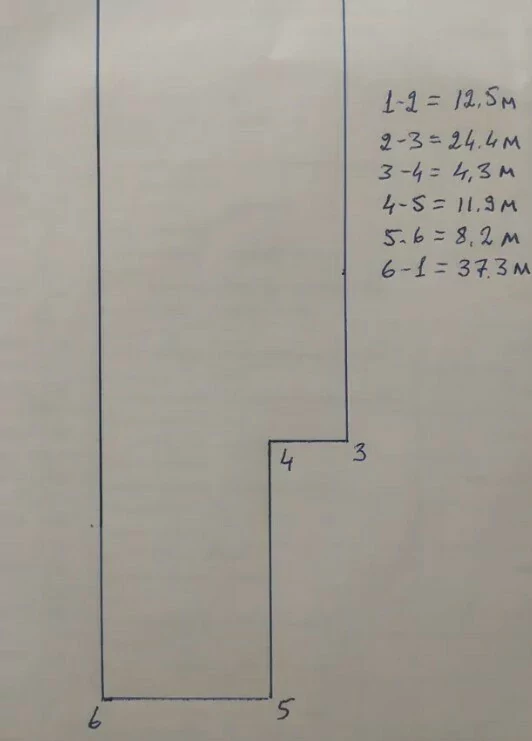 1-2 = 12,5 м
2-3 = 24.4 м
3-4 = 4,3 м
4-5 = 11.9 м
5.6 = 8,2 м
6-1 = 37.3 м
4 3
6 5